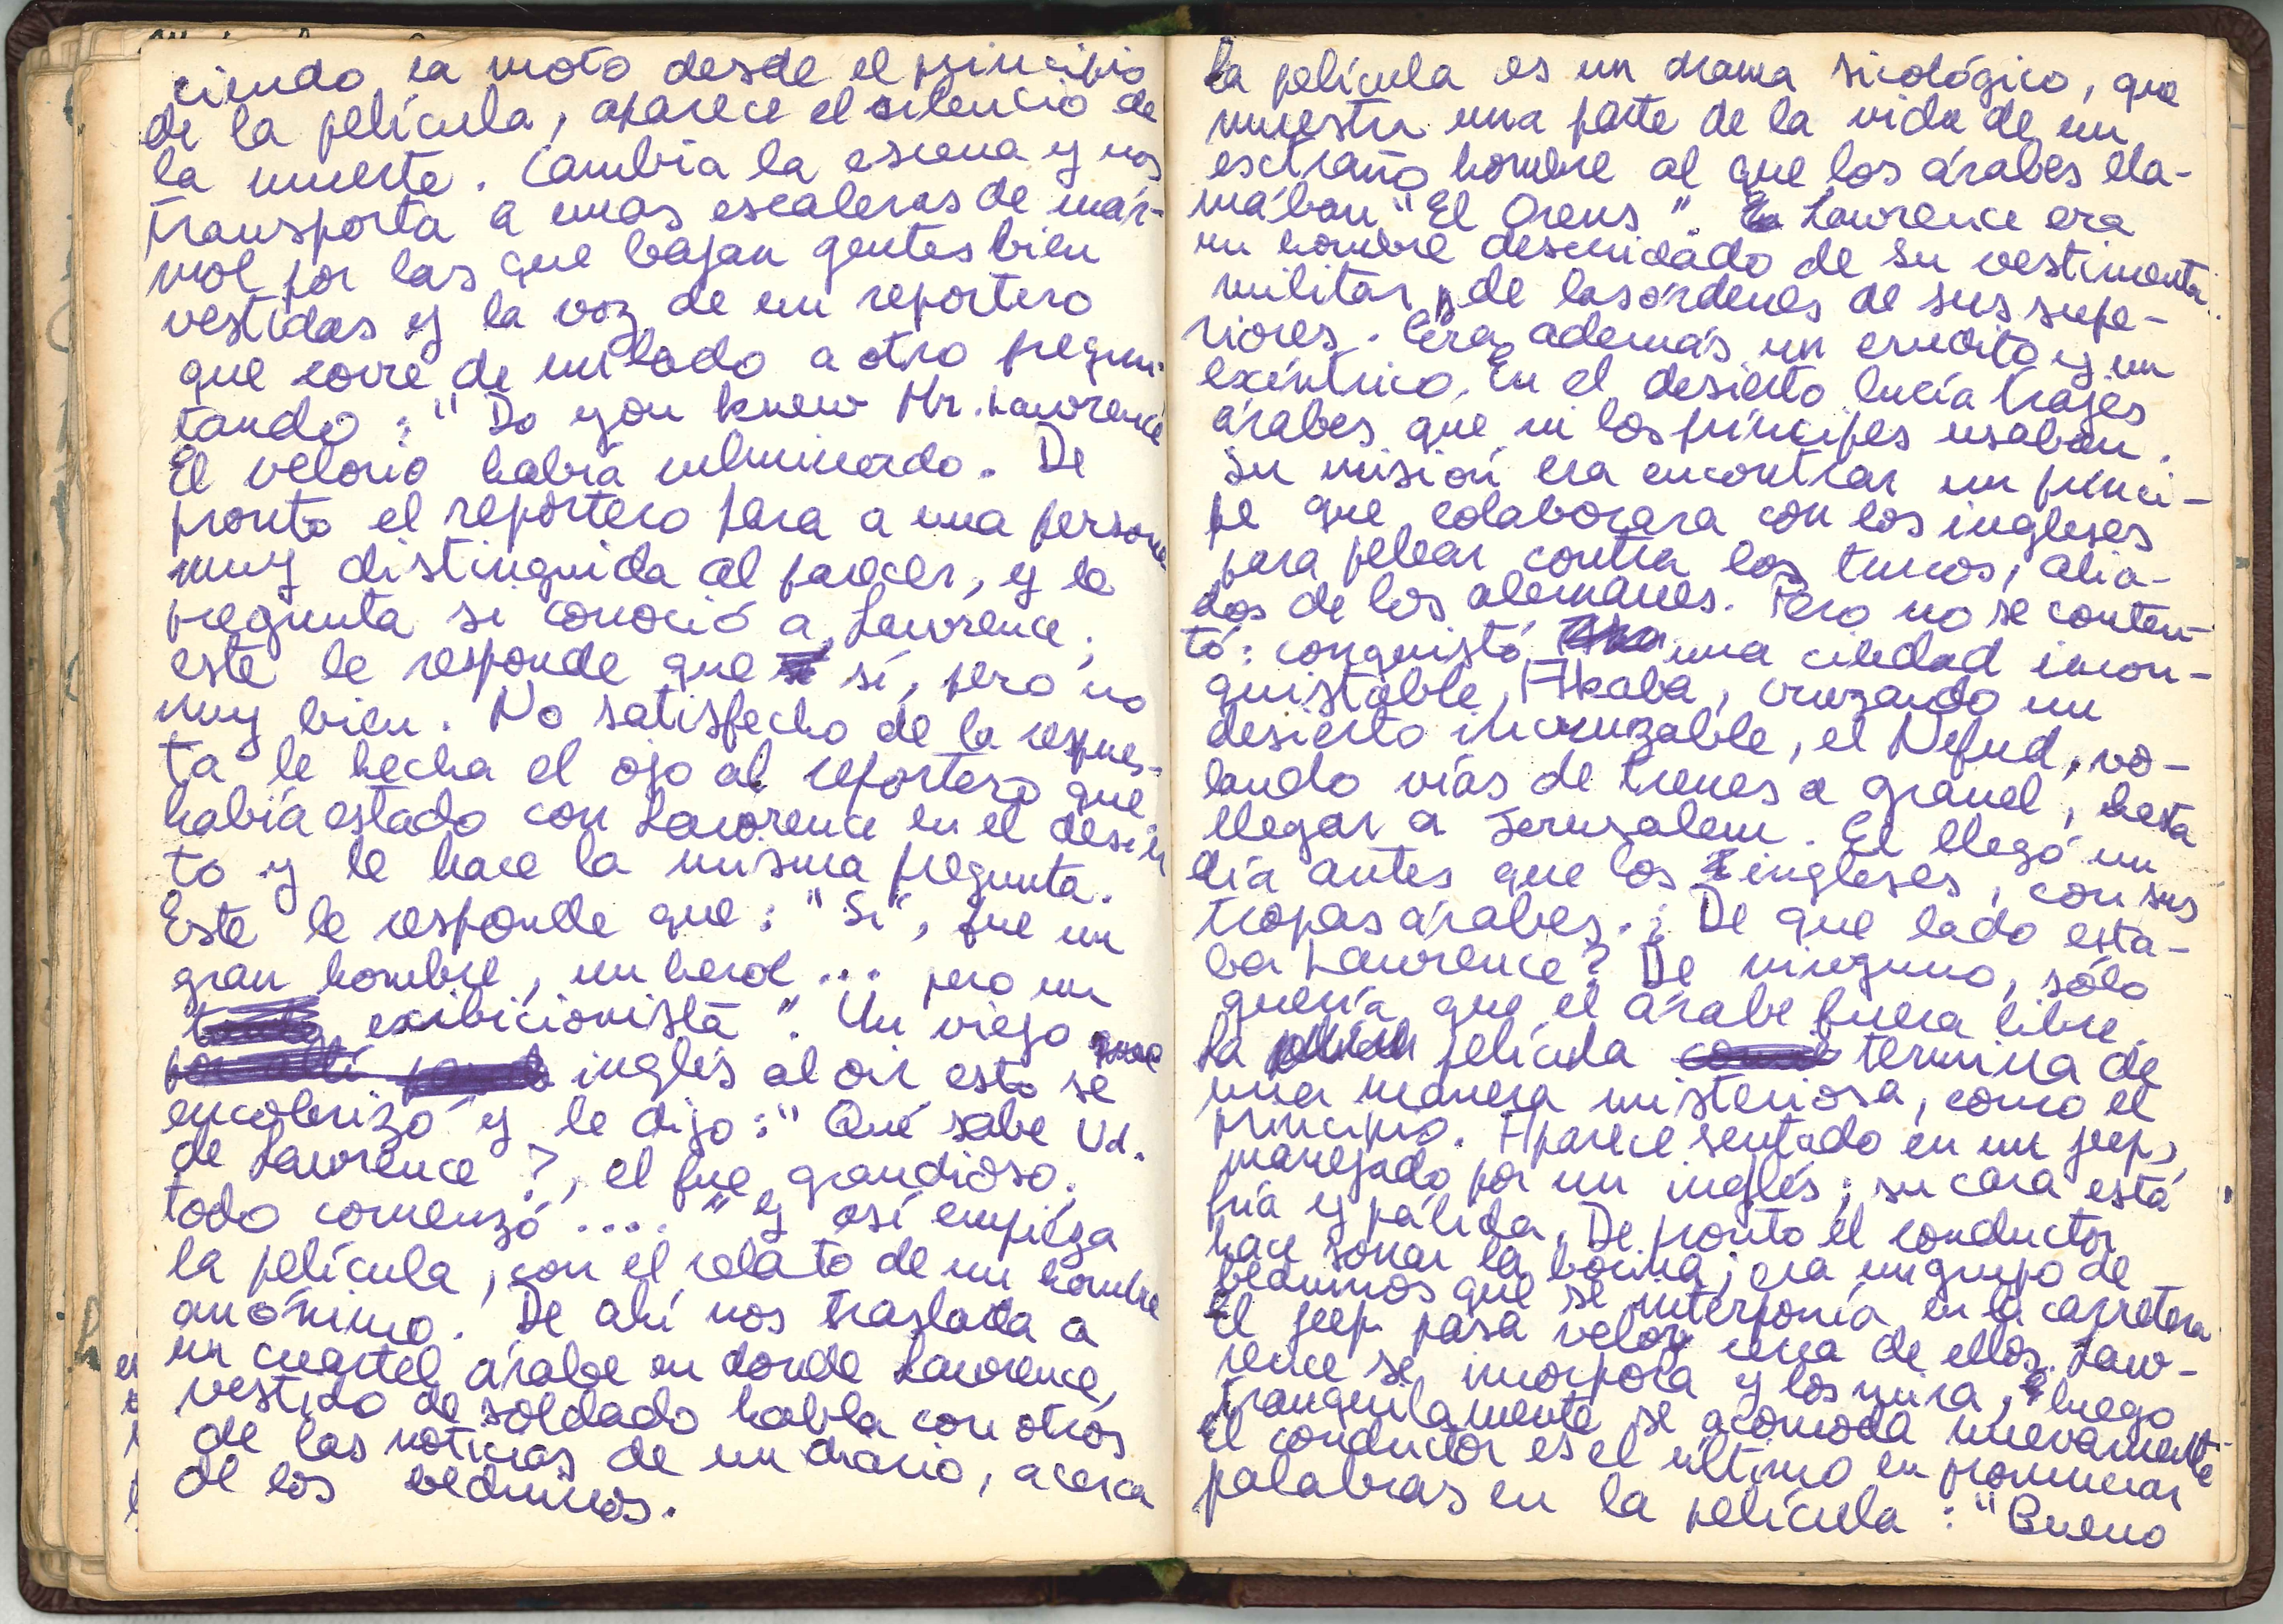 ciendo la moto desde el principio
de la película, aparece el silencio de
la muerte. Cambia la escena y nos
transporta a unas escaleras de már-
mol por las que bajan gentes bien
vestidas y la voz de un reportero
que corre de un lado a otro pregun-
tando: "Do you knew Mr. Lawrence
El velorio había culminado. De
pronto el reportero para a una persona
muy distinguida al parecer, y le
pregunta si conoció a Lawrence;
este le responde que sí, pero no
muy bien. No satisfecho de la respues-
ta le hecha el ojo al reportero que
había estado con Lawrence en el desier
to y le hace la misma pregunta.
Este le responde que: "Si", fue un
gran hombre, un heroe... pero un
exibicionista". Un viejo
inglés al oir esto se
encolerizó y le dijo: "Qué sabe Ud.
de Lawrence?, el fue grandioso,
todo comenzó...." y así empieza
la película, con el relato de un hombre
anónimo. De ahí nos traslada a
un cuartel árabe en donde Lawrence,
vestido de soldado habla con otros
de las noticias de un diario, acerca
de los beduinos.
la película es un drama sicológico, que
muestra una parte de la vida de un
extraño hombre al que los árabes lla-
mában "El Orens". Lawrence era
un hombre descuidado de su vestimenta
militar y de las órdenes de sus supe-
riores. Era además un erudito y un
exéntrico. En el desierto lucía trajes
árabes que ni los príncipes usaban.
Su misión era encontrar un prínci-
pe que colaborara con los ingleses
para pelear contra los turcos, alia-
dos de los alemanes. Pero no se conten-
tó: conquistó una ciudad incon-
quistable, Akaba, cruzando un
desierto incruzable, el Nefud, vo-
lando vías de trenes a granel, hasta
llegar a Jerusalem. El llegó un
día antes que los ingleses, con sus
tropas árabes. ¿De que lado esta-
ba Lawrence? De ninguno, sólo
quería que el árabe fuera libre.
La película termina de
una manera misteriosa, como el
principio. Aparece sentado en un jeep,
manejado por un inglés; su cara está
fría y pálida. De pronto el conductor
hace sonar la bocina; era un grupo de
beduinos que se interponía en la carretera
El jeep pasa veloz cerca de ellos. Law-
rence se incorpora y los mira, luego
tranquilamente se acomoda nuevamente
El conductor es el último en pronunciar
palabras en la película: "Bueno